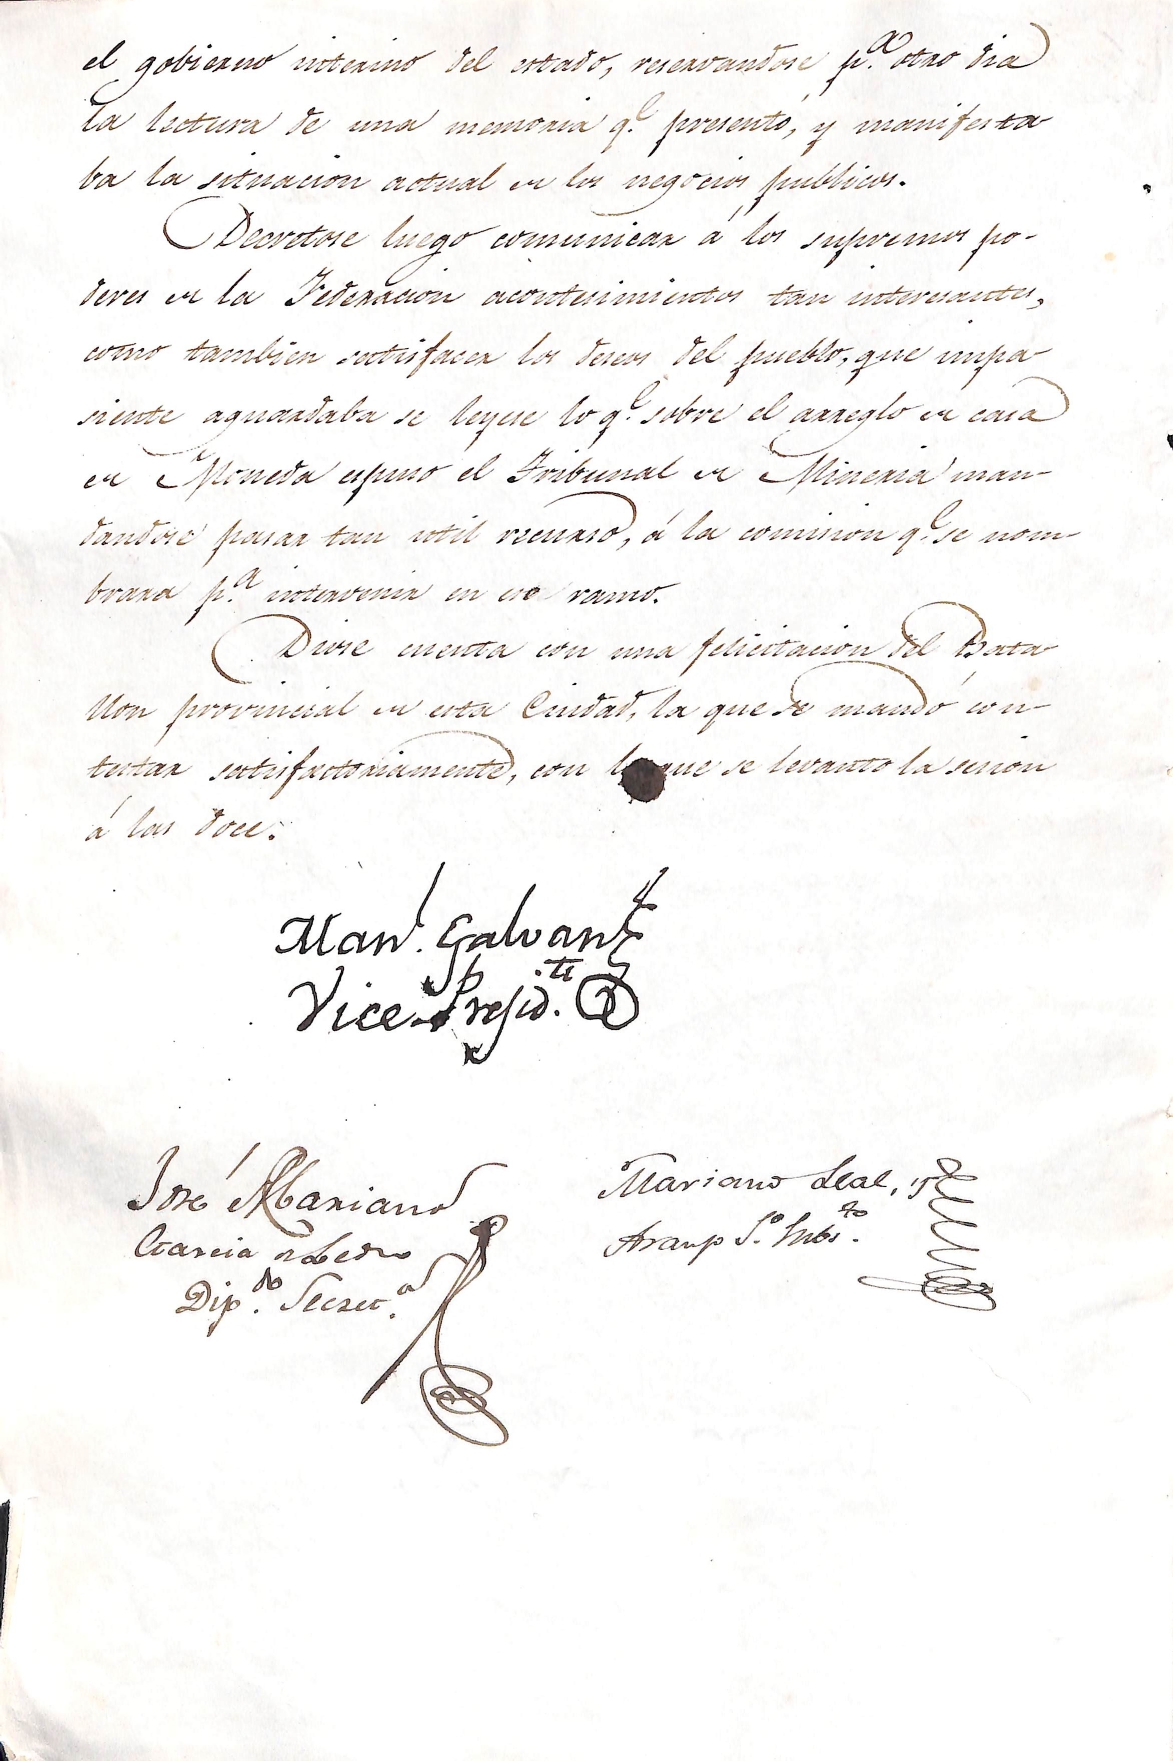 el gobierno interino del estado, reservandose p.ª otro dia
la lectura de una memoria q.e presentó, y manifesta
ba la situacion actual de los negocios publicos.
Decretose luego comunicar á los supremos po-
deres de la Federacion acontesimientos tan interesantes,
como tambien satisfacer los deseos del pueblo, que impa
siente aguardaba se leyese lo q.e sobre el arreglo de casa
de Moneda espuso el Tribunal de Mineria man-
dandose pasar tan util recurso, á la comision q.e se nom-
brara p.ª intervenir en ese ramo.
Diose cuenta con una felicitacion del Bata
llon provincial de esta Ciudad, la que se mandó con-
testar satisfactoriamente, con lo que se levanto la sesion
á las doce.
Man.l Galvan
Vice-Presid.te
José Mariano
Garcia de Leon
Dip.do Secret.o
Mariano Leal, y
Araujo S.o